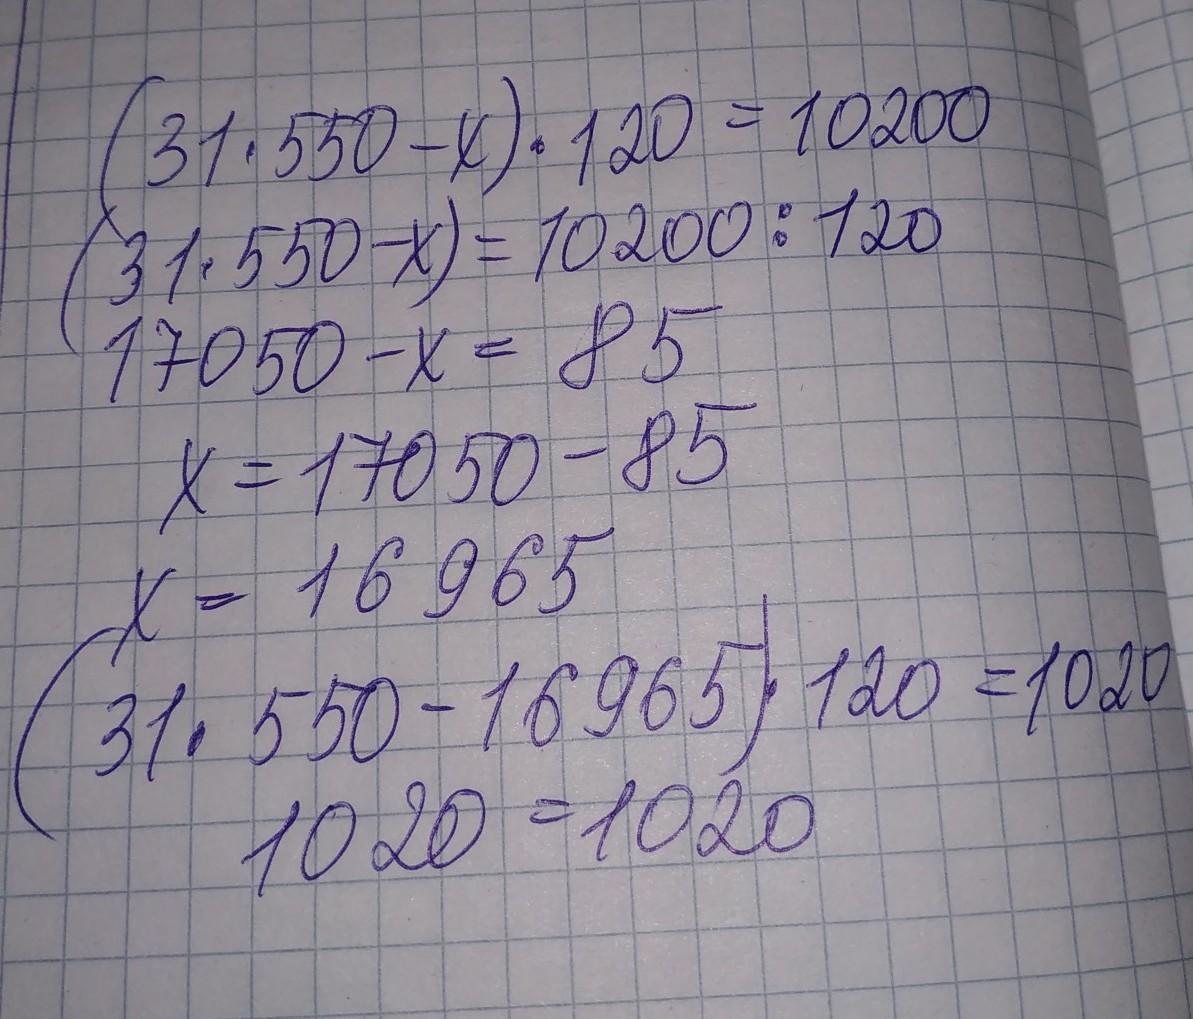 (31·550-x)·120=10200
(31·550-x)=10200:120
17050-x=85
x=17050-85
x=16965
(31·550-16965)·120=1020
1020=1020